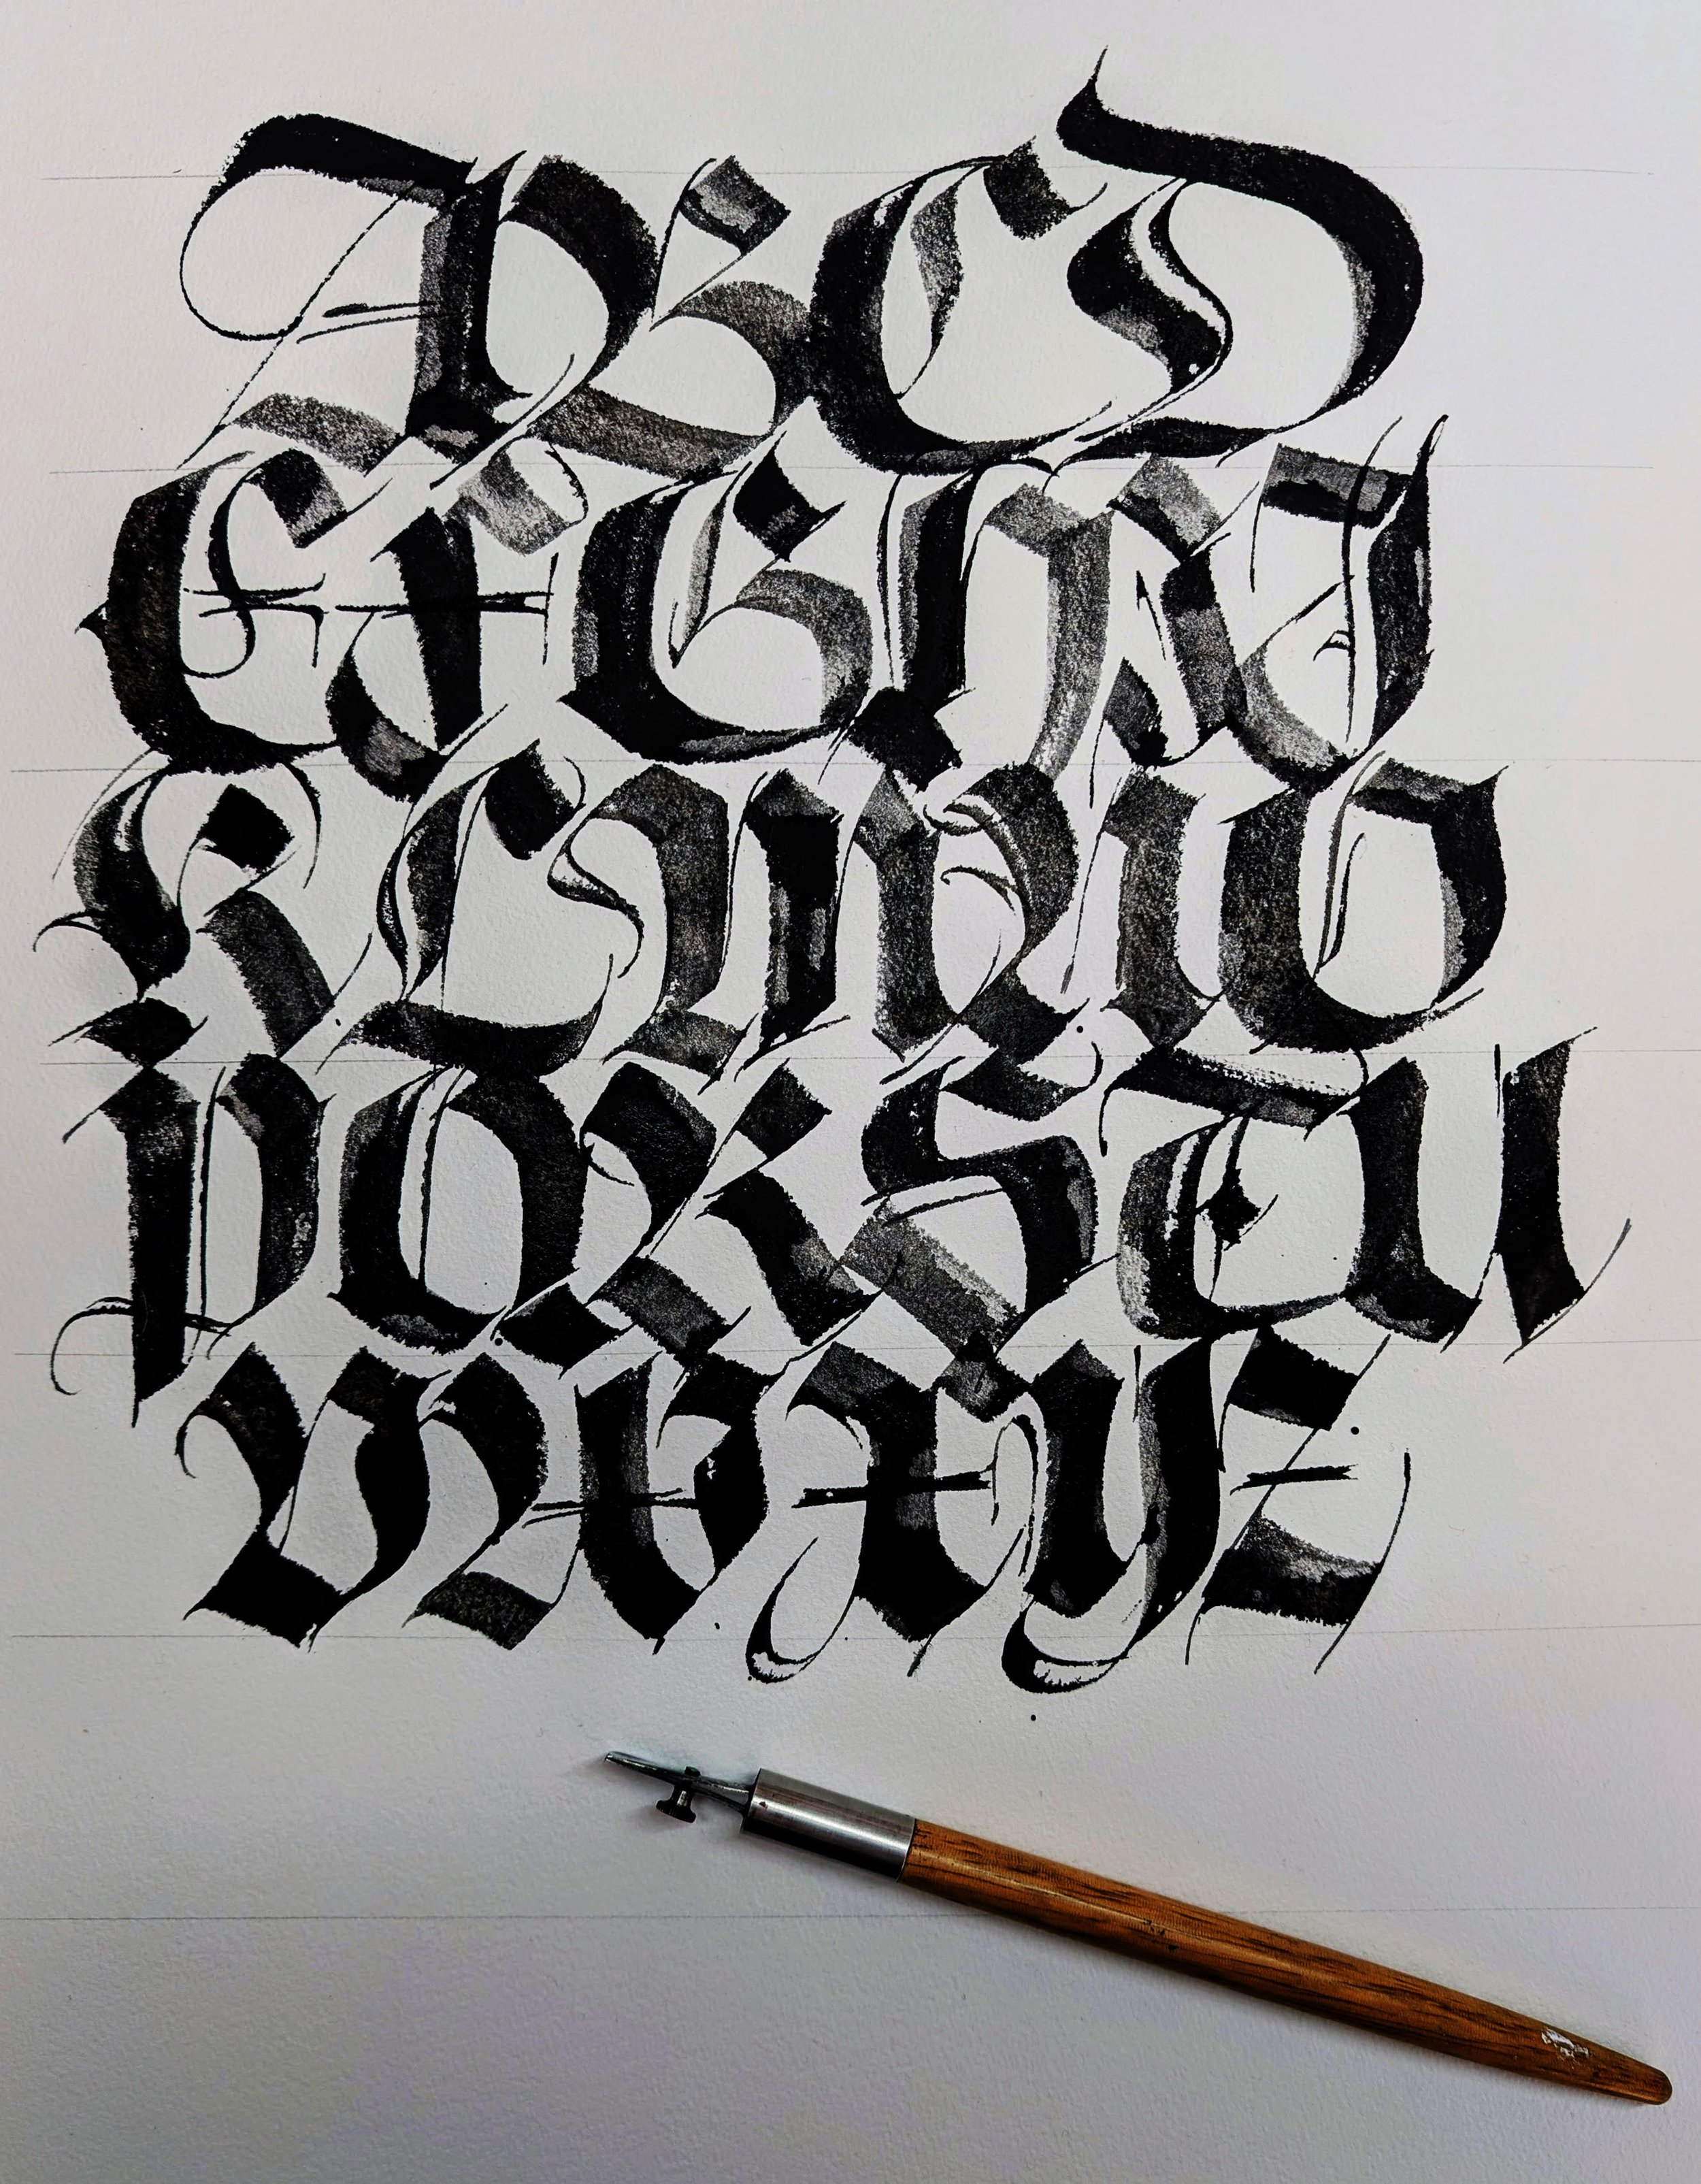 ABCD
EFGHIJ
KLMNO
PQRSTU
VWXYZ